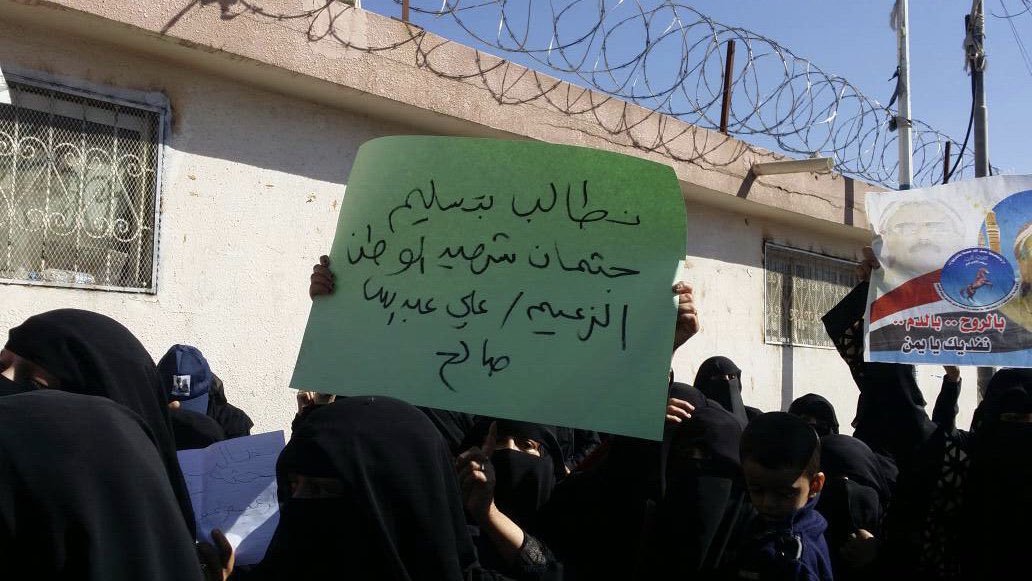 نطالب بتسليم
جثمان شهيد الوطن
الزعيم / علي عبدالله
صالح
بالروح .. بالدم ..
نفديك يا يمن